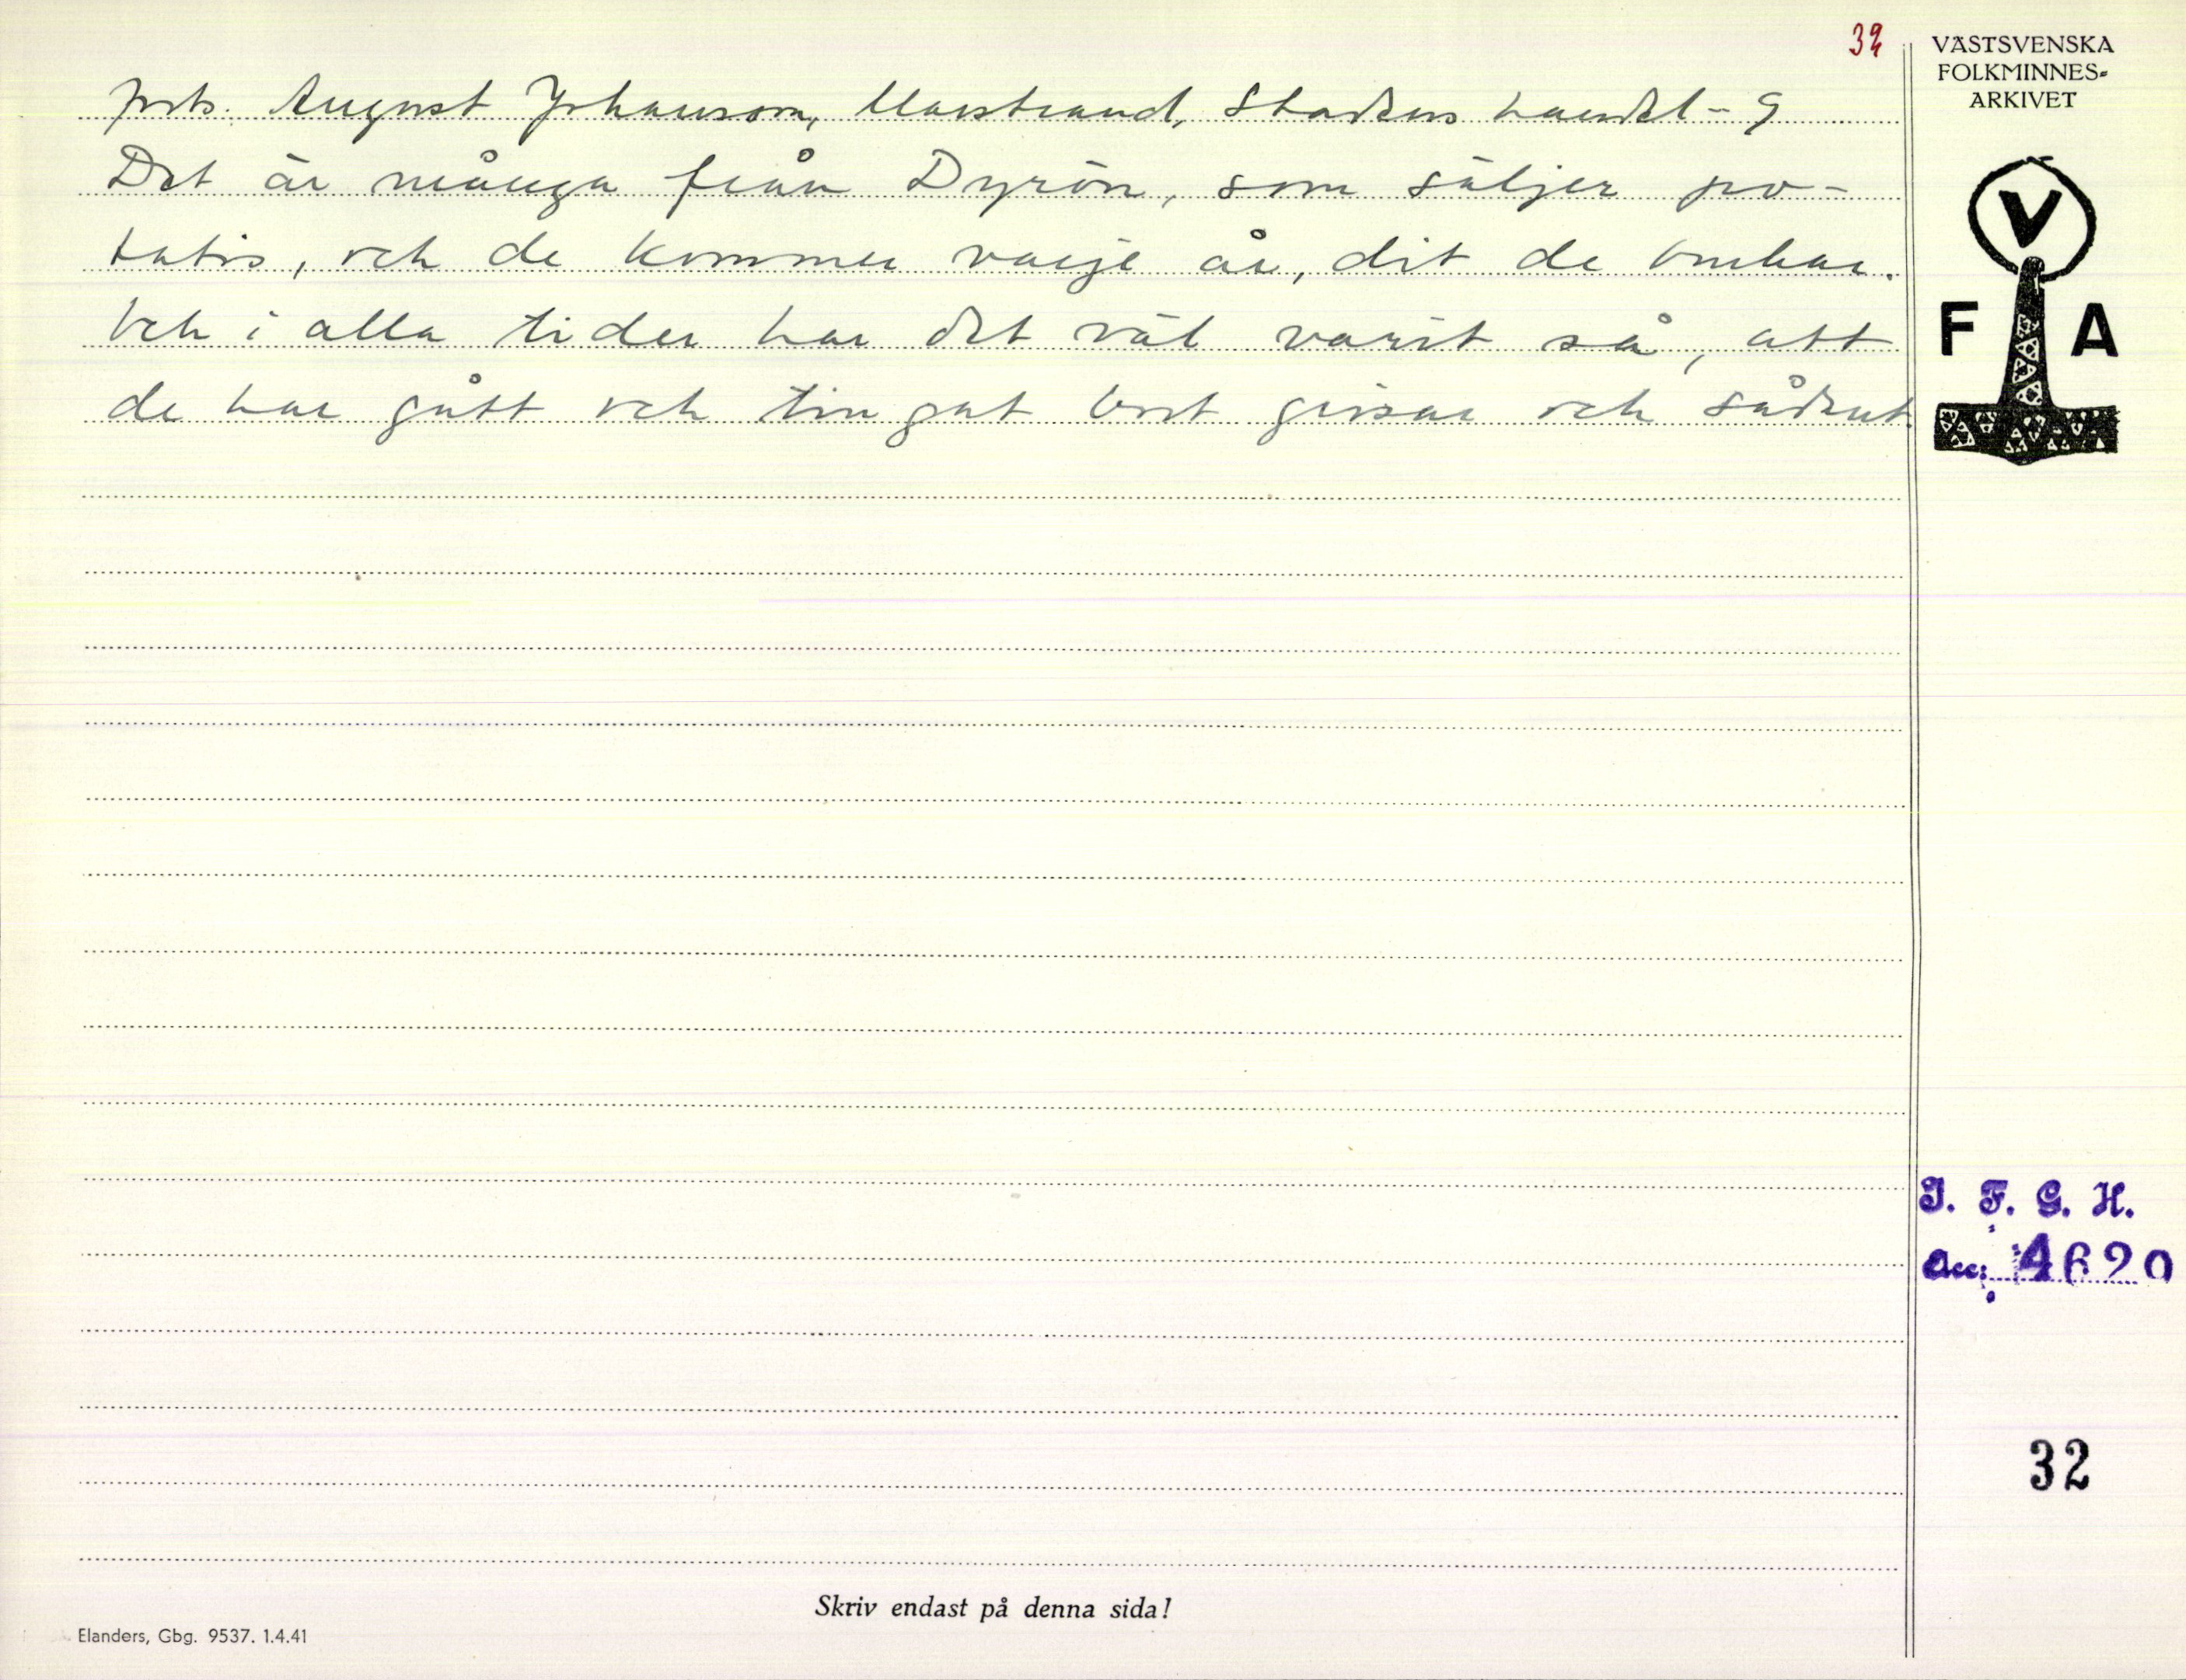 32
forts. August Johansson, Marstrand, Stadens handel - 9
Det är många från Dyrön, som säljer po-
tatis, och de kommer varje år, dit de bruka.
Och i alla tider har det väl varit så, att
de har gått och tingat bort grisar och sådant.
VÄSTSVENSKA
FOLKMINNES-
ARKIVET
V
F A
I. F. G. H.
Acc. 4620
32
Skriv endast på denna sida!
Elanders, Gbg. 9537. 1.4.41